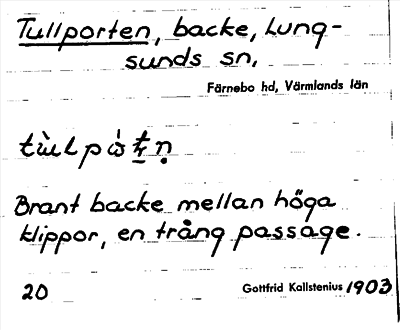 Tullporten, backe, Lung-
sunds sn,
Färnebo hd, Värmlands län
Brant backe mellan höga
klippor, en trång passage.
20 Gottfrid Kallstenius 1903